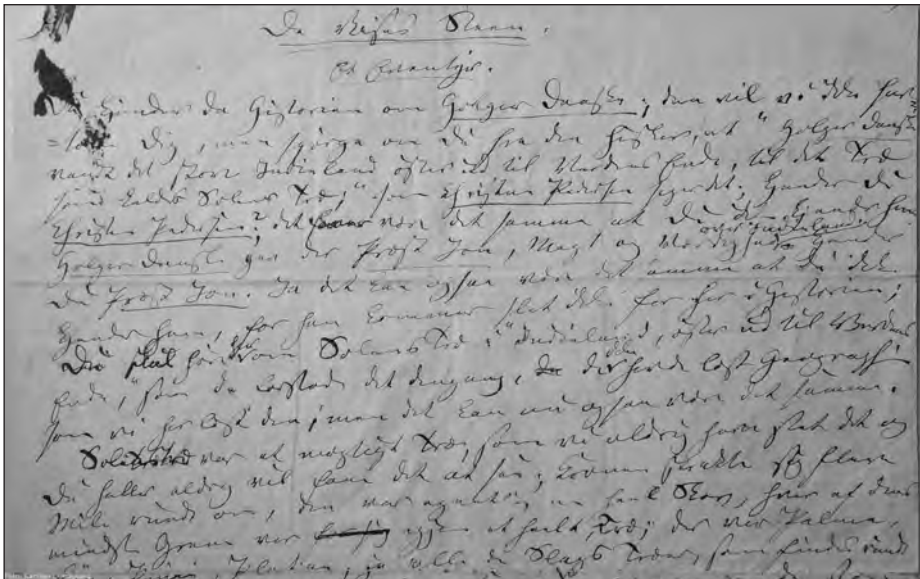 De Vises Steen.
Et Eventyr.
Du kjender da Historien om Holger Danske; den vil vi ikke for=
=tælle Dig, men spørge om Du fra den husker, at "Holger Danske
vandt det store Indieland øster ud til Verdens Ende, til det Træ
som kaldes Solens Træ;" som Christen Pedersen siger det; kjender Du
Christen Pedersen? det kan være det samme at Du ikke kjender ham
Holger Danske gav der Præst Jon, Magt og Værdighed over Indieland kjender
Du Præst Jon. Ja det kan ogsaa være det samme at Du ikke
kjender ham, for han kommer slet ikke for her i Historien;
Du skal høre om Solens Træ i "Indieland, øster ud til Verdens
Ende," som de forstode det dengang, da de ikke havde læst Geographi
som vi har læst den; men det kan nu ogsaa være det samme.
Solens Træ var et mægtigt Træ, som vi aldrig have seet det og
Du heller aldrig vil faae det at see; Kronen strakte sig flere
Mile rundt om, den var egentlig en heel Skov, hver af dens
mindste Grene var igjen et heelt Træ; der var Palmer,
Pinier, Platan, ja alle de Slags Træer, som findes rundt